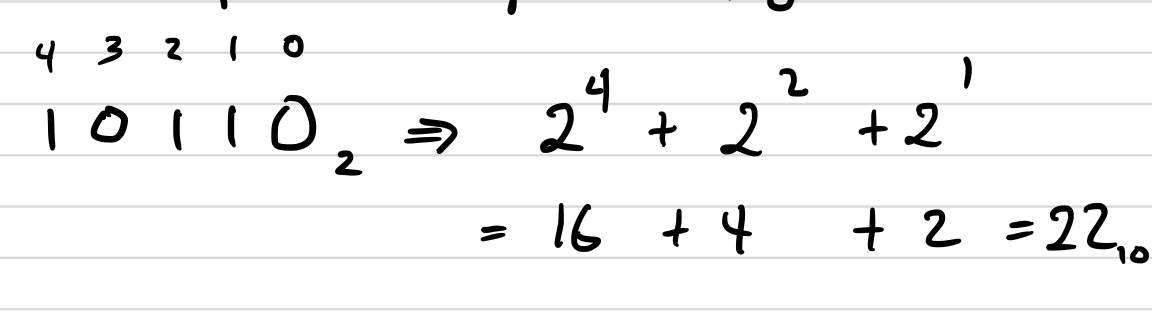 4 3 2 1 0
10110₂ ⇒ 2⁴ + 2² + 2¹
= 16 + 4 + 2 = 22₁₀